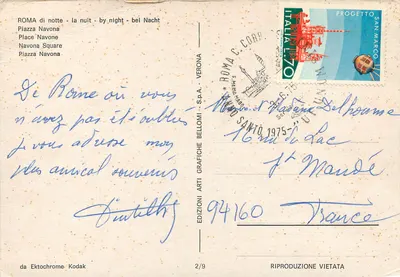 ROMA di notte - la nuit - by night - bei Nacht
Piazza Navona
Place Navone
Navona Square
Piazza Navona
De Rome où vous
n'avez pas été oubliés
je vous adresse mon
plus amical souvenir
EDIZIONI ARTI GRAFICHE BELLOMI - S.p.A. - VERONA
PROGETTO SAN MARCO
ITALIA 70
ROMA C. CORR
ANNO SANTO 1975
Monsieur et Madame Delhoume
16 rue du Lac
St Mandé
94160 France
da Ektachrome Kodak
2/9
RIPRODUZIONE VIETATA